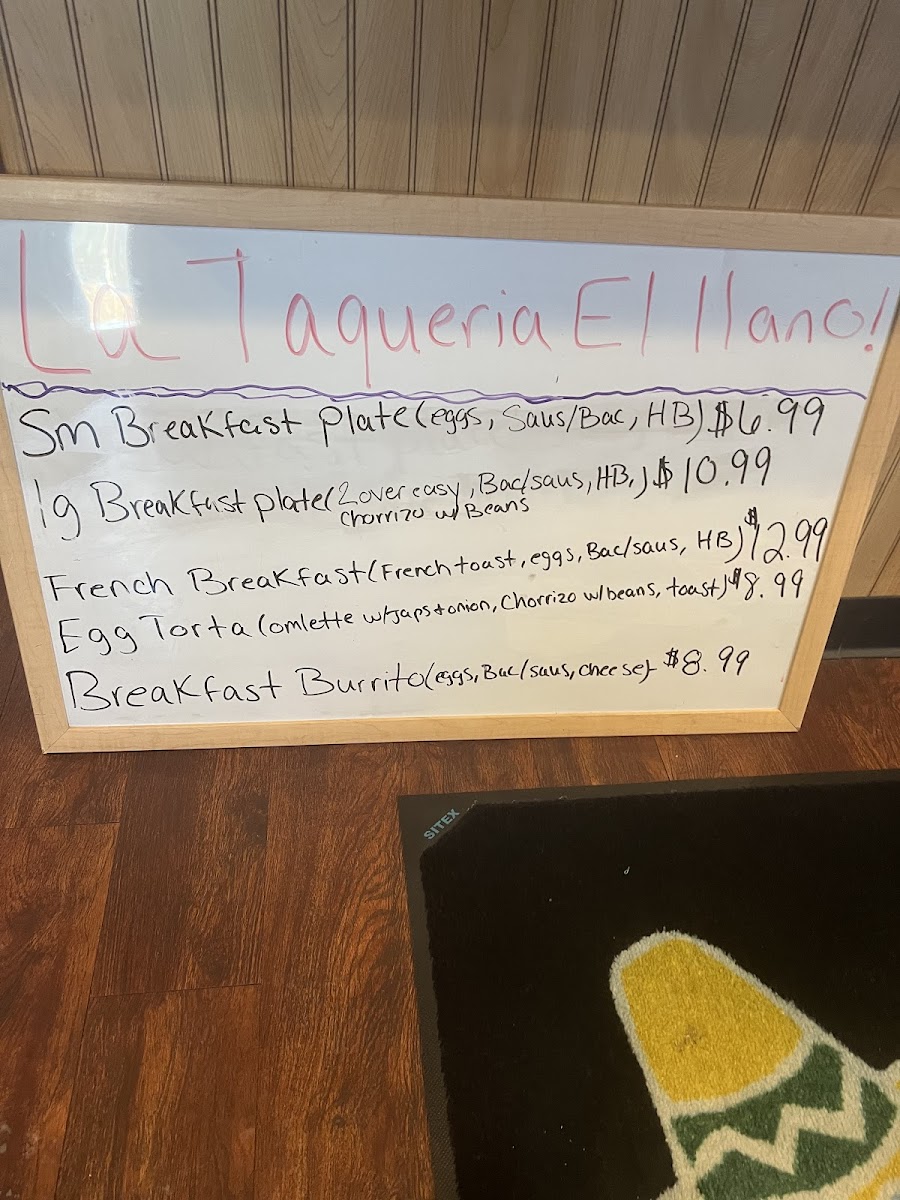 La Taqueria El llano!
Sm Breakfast Plate (eggs, Saus/Bac, HB) $6.99
lg Breakfast plate (2 over easy, Bac/saus, HB,) $10.99
Chorrizo w/ Beans
French Breakfast (French toast, eggs, Bac/saus, HB) $12.99
Egg Torta (omlette w/Japs + onion, Chorrizo w/beans, toast) $8.99
Breakfast Burrito (eggs, Bac/saus, cheese) $8.99
SITEX